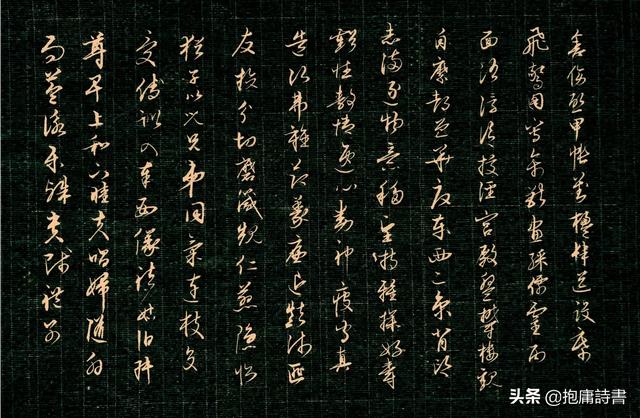 而益詠樂殊貴賤禮別
尊卑上和下睦夫唱婦隨外
受傅訓入奉母儀諸姑伯叔
猶子比兒兄弟同氣連枝交
友投分切磨箴規仁慈隱惻
造次弗離節義廉退顛沛匪
虧性靜情逸心動神疲守真
志滿逐物意移堅持雅操好爵
自縻都邑華夏東西二京背邙
面洛浮渭據涇宮殿盤鬱樓觀
飛驚圖寫禽獸畫彩仙靈丙
舍傍啟甲帳對楹肆筵設席
头条 @抱庸詩書